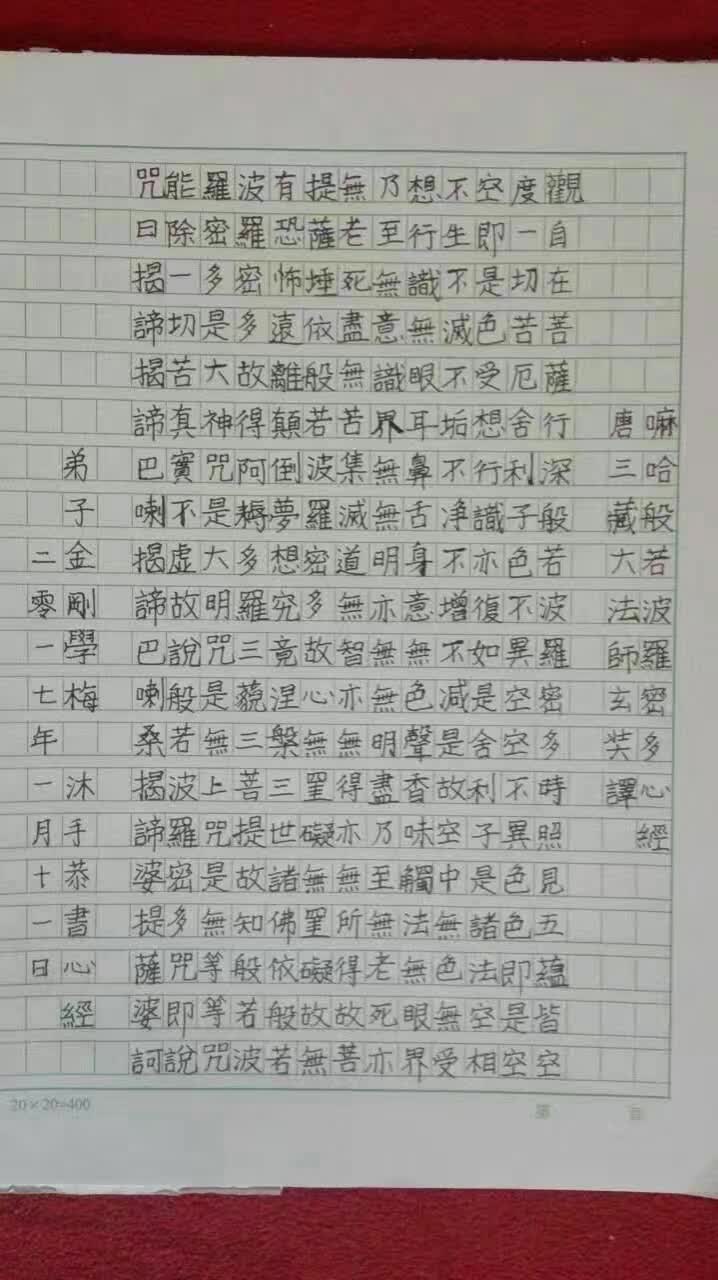 嘛哈般若波羅密多心經
唐三藏大法師玄奘譯
觀自在菩薩行深般若波羅密多時照見五蘊皆空
度一切苦厄舍利子色不異空空不異色色即是空
空即是色受想行識亦復如是舍利子是諸法空相
不生不滅不垢不净不增不減是故空中無色無受
想行識無眼耳鼻舌身意無色聲香味觸法無眼界
乃至無意識界無無明亦無無明盡乃至無老死亦
無老死盡無苦集滅道無智亦無得亦無所得故菩
提薩埵依般若波羅密多故心無罣礙無罣礙故無
有恐怖遠離顛倒夢想究竟涅槃三世諸佛依般若
波羅密多故得阿耨多羅三藐三菩提故知般若波
羅密多是大神咒是大明咒是無上咒是無等等咒
能除一切苦真實不虛故說般若波羅密多咒即說
咒曰揭諦揭諦巴喇揭諦巴喇桑揭諦婆提薩婆訶
弟子金剛學梅 沐手恭書心經
二零一七年一月十一日
20×20=400
第 頁